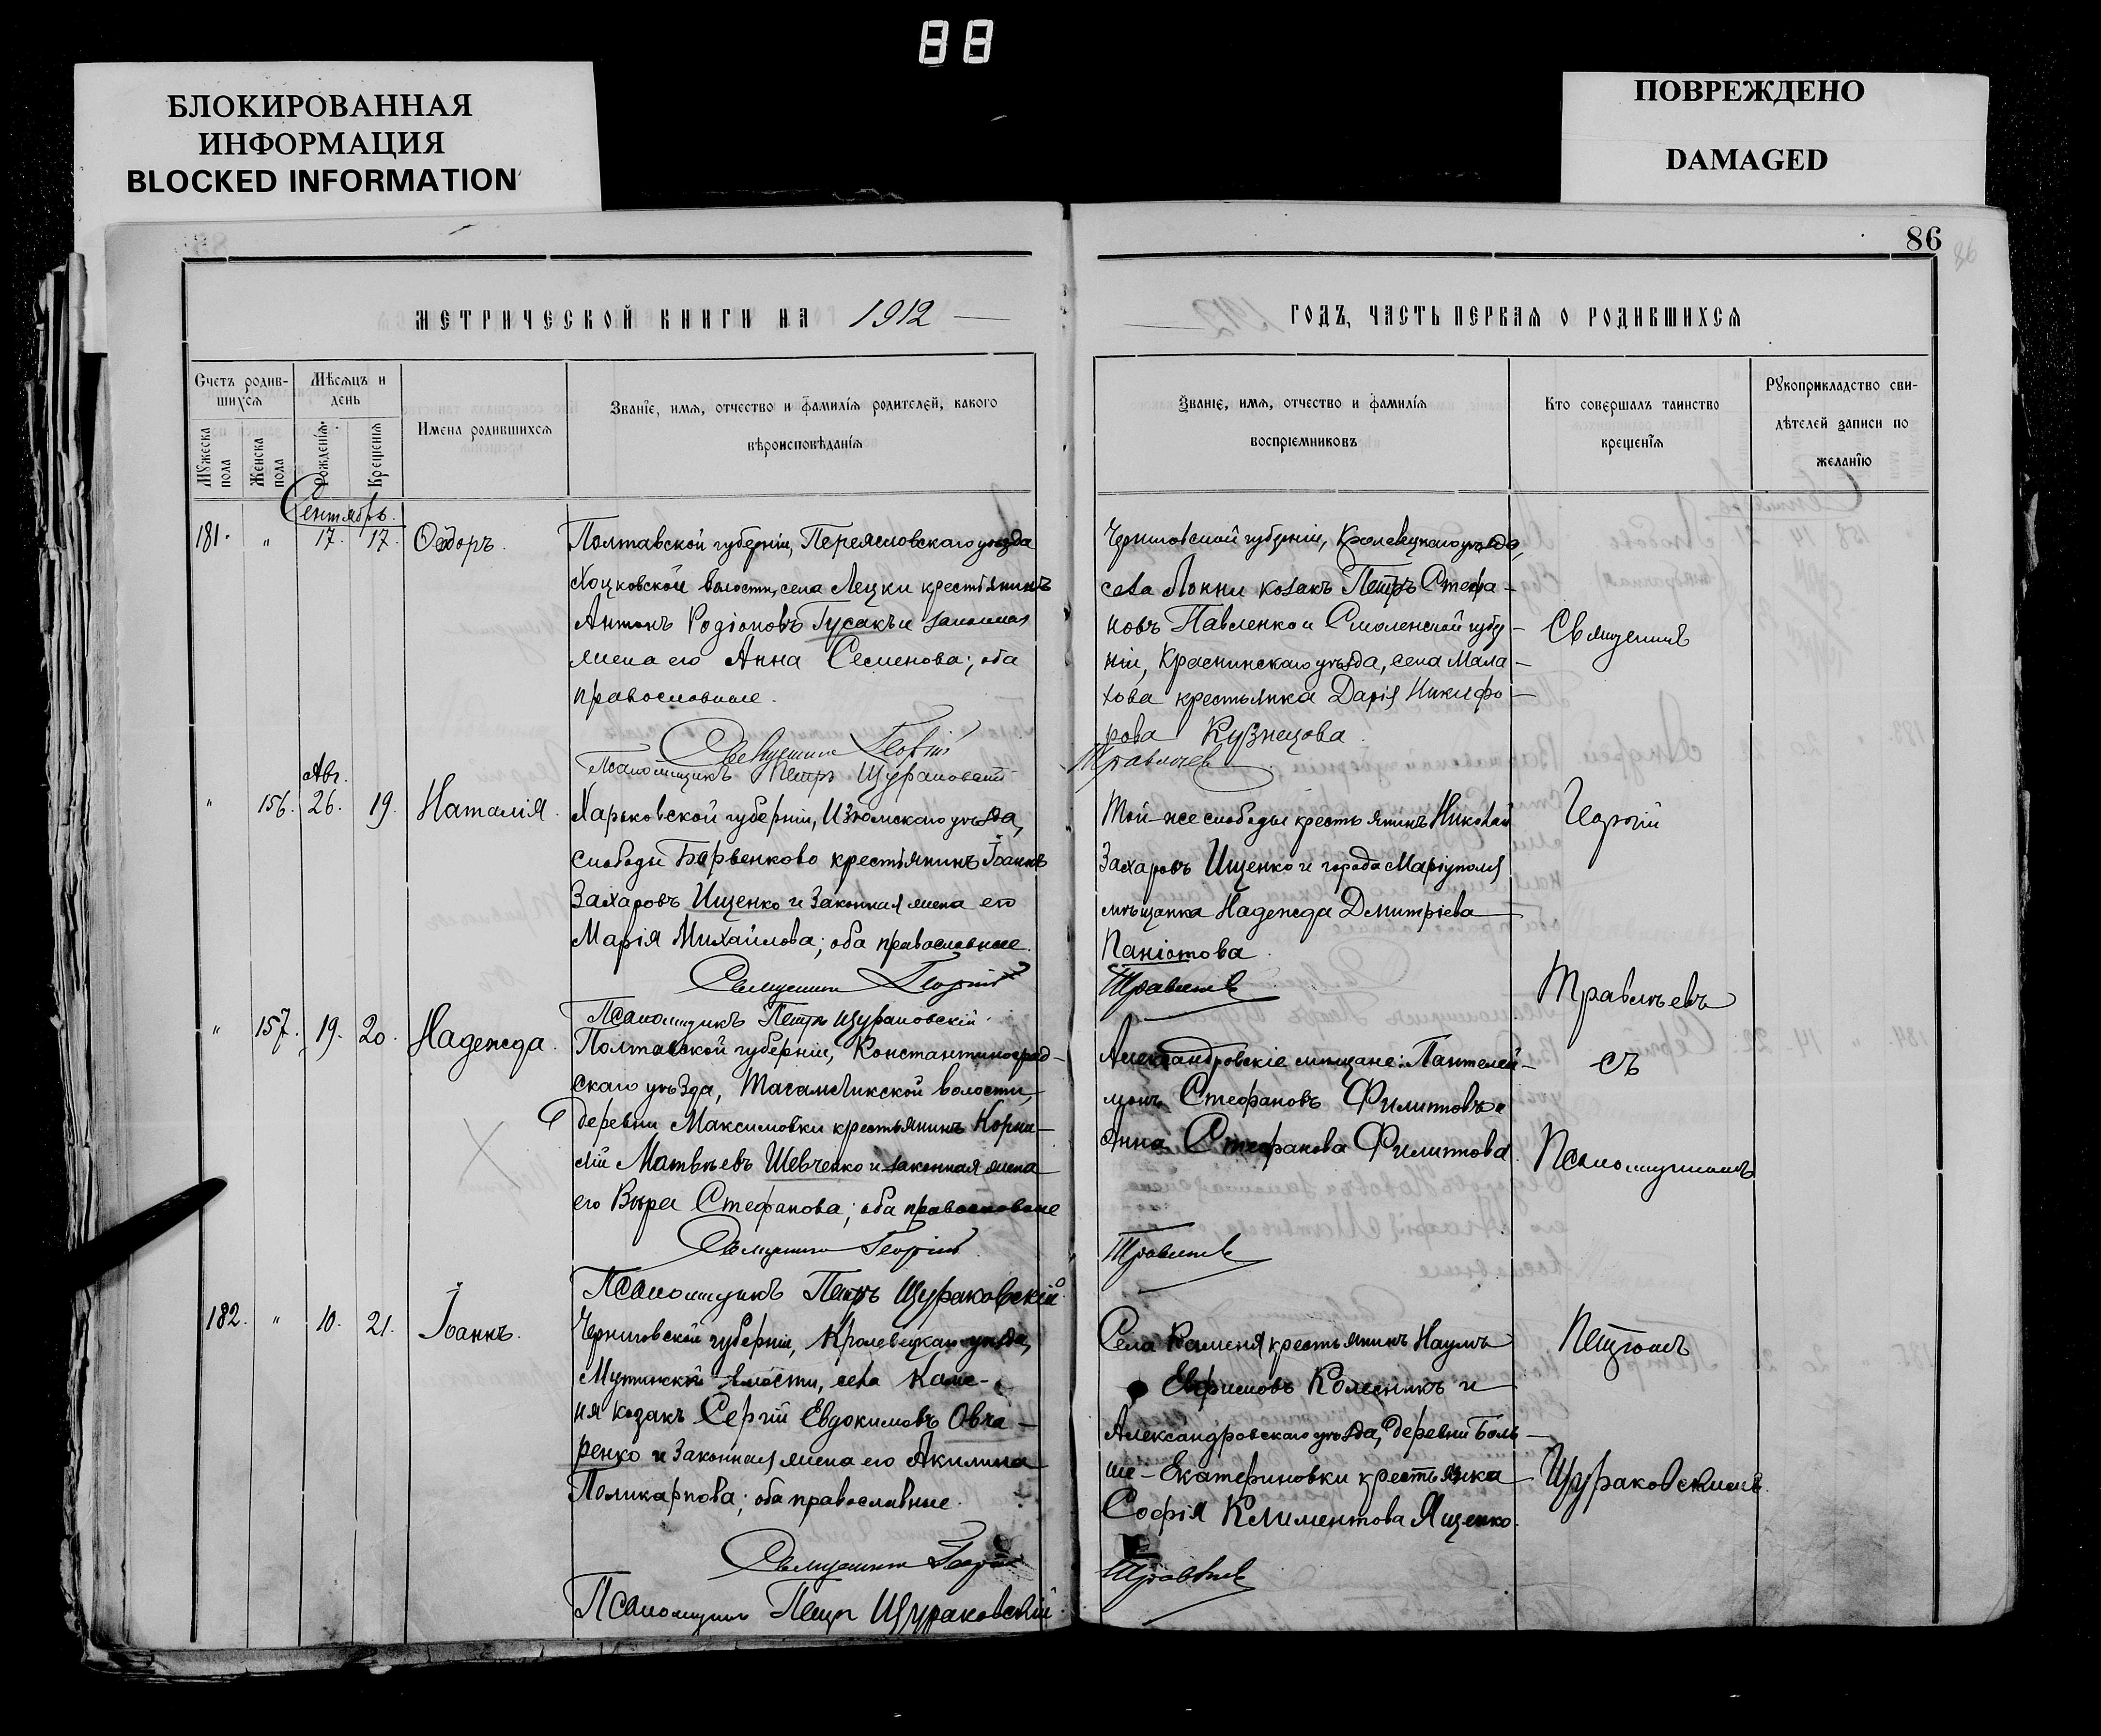 88
БЛОКИРОВАННАЯ
ИНФОРМАЦИЯ
BLOCKED INFORMATION
ПОВРЕЖДЕНО
DAMAGED
86
86
МЕТРИЧЕСКОЙ КНИГИ НА 1912
Счетъ родив-
шихся
Мѣсяцъ и
день
Мужеска пола
Женска пола
Рожденія.
Крещенія
Имена родившихся
Званіе, имя, отчество и фамилія родителей, какого
вѣроисповѣданія
Сентябрь.
181. " 17. 17. Ѳеодоръ.
Полтавской губерніи, Переяславскаго уѣзда
Хоцковской волости, села Лецки крестьянинъ
Антонъ Родіоновъ Гусакъ и законная
жена его Анна Семенова; оба
православные.
Священникъ Георгій
Псаломщикъ Петръ Щураковскій
Авг.
" 156. 26. 19. Наталія.
Харьковской губерніи, Изюмскаго уѣзда,
слободы Барвенково крестьянинъ Іоаннъ
Захаровъ Ищенко и законная жена его
Марія Михайлова; оба православные.
Священникъ Георгій
Псаломщикъ Петръ Щураковскій
" 157. 19. 20. Надежда.
Полтавской губерніи, Константиноград-
скаго уѣзда, Тагамлыкской волости,
деревни Максимовки крестьянинъ Корни-
лій Матвѣевъ Шевченко и законная жена
его Вѣра Стефанова; оба православные
Священникъ Георгій
Псаломщикъ Петръ Щураковскій
182. " 10. 21. Іоаннъ.
Черниговской губерніи, Кролевецкаго уѣзда,
Мутинской волости, села Каме-
ня козакъ Сергій Евдокимовъ Овча-
ренко и законная жена его Акилина
Поликарпова; оба православные.
Священникъ Георгій
Псаломщикъ Петръ Щураковскій
ГОДЪ, ЧАСТЬ ПЕРВАЯ О РОДИВШИХСЯ
Званіе, имя, отчество и фамилія
воспріемниковъ
Кто совершалъ таинство
крещенія
Рукоприкладство сви-
дѣтелей записи по
желанію
Черниговской губерніи, Кролевецкаго уѣзда,
села Локни козакъ Петръ Стефа-
новъ Павленко и Смоленской губер-
ніи, Краснинскаго уѣзда, села Мала-
хова крестьянка Дарія Никифо-
рова Кузнецова.
Травлѣевъ
Той-же слободы крестьянинъ Николай
Захаровъ Ищенко и города Маріуполя
мѣщанка Надежда Димитріева
Паніотова.
Травлѣевъ
Александровскіе мѣщане: Пантелей-
монъ Стефановъ Филиповъ и
Анна Стефанова Филипова.
Травлѣевъ
Села Каменя крестьянинъ Наумъ
Ефримовъ Колесникъ и
Александровскаго уѣзда, деревни Боль-
ше-Екатериновки крестьянка
Софія Климентова Ященко.
Травлѣевъ
Священникъ
Георгій
Травлѣевъ
съ
Псаломщикомъ
Петромъ
Щураковскимъ.